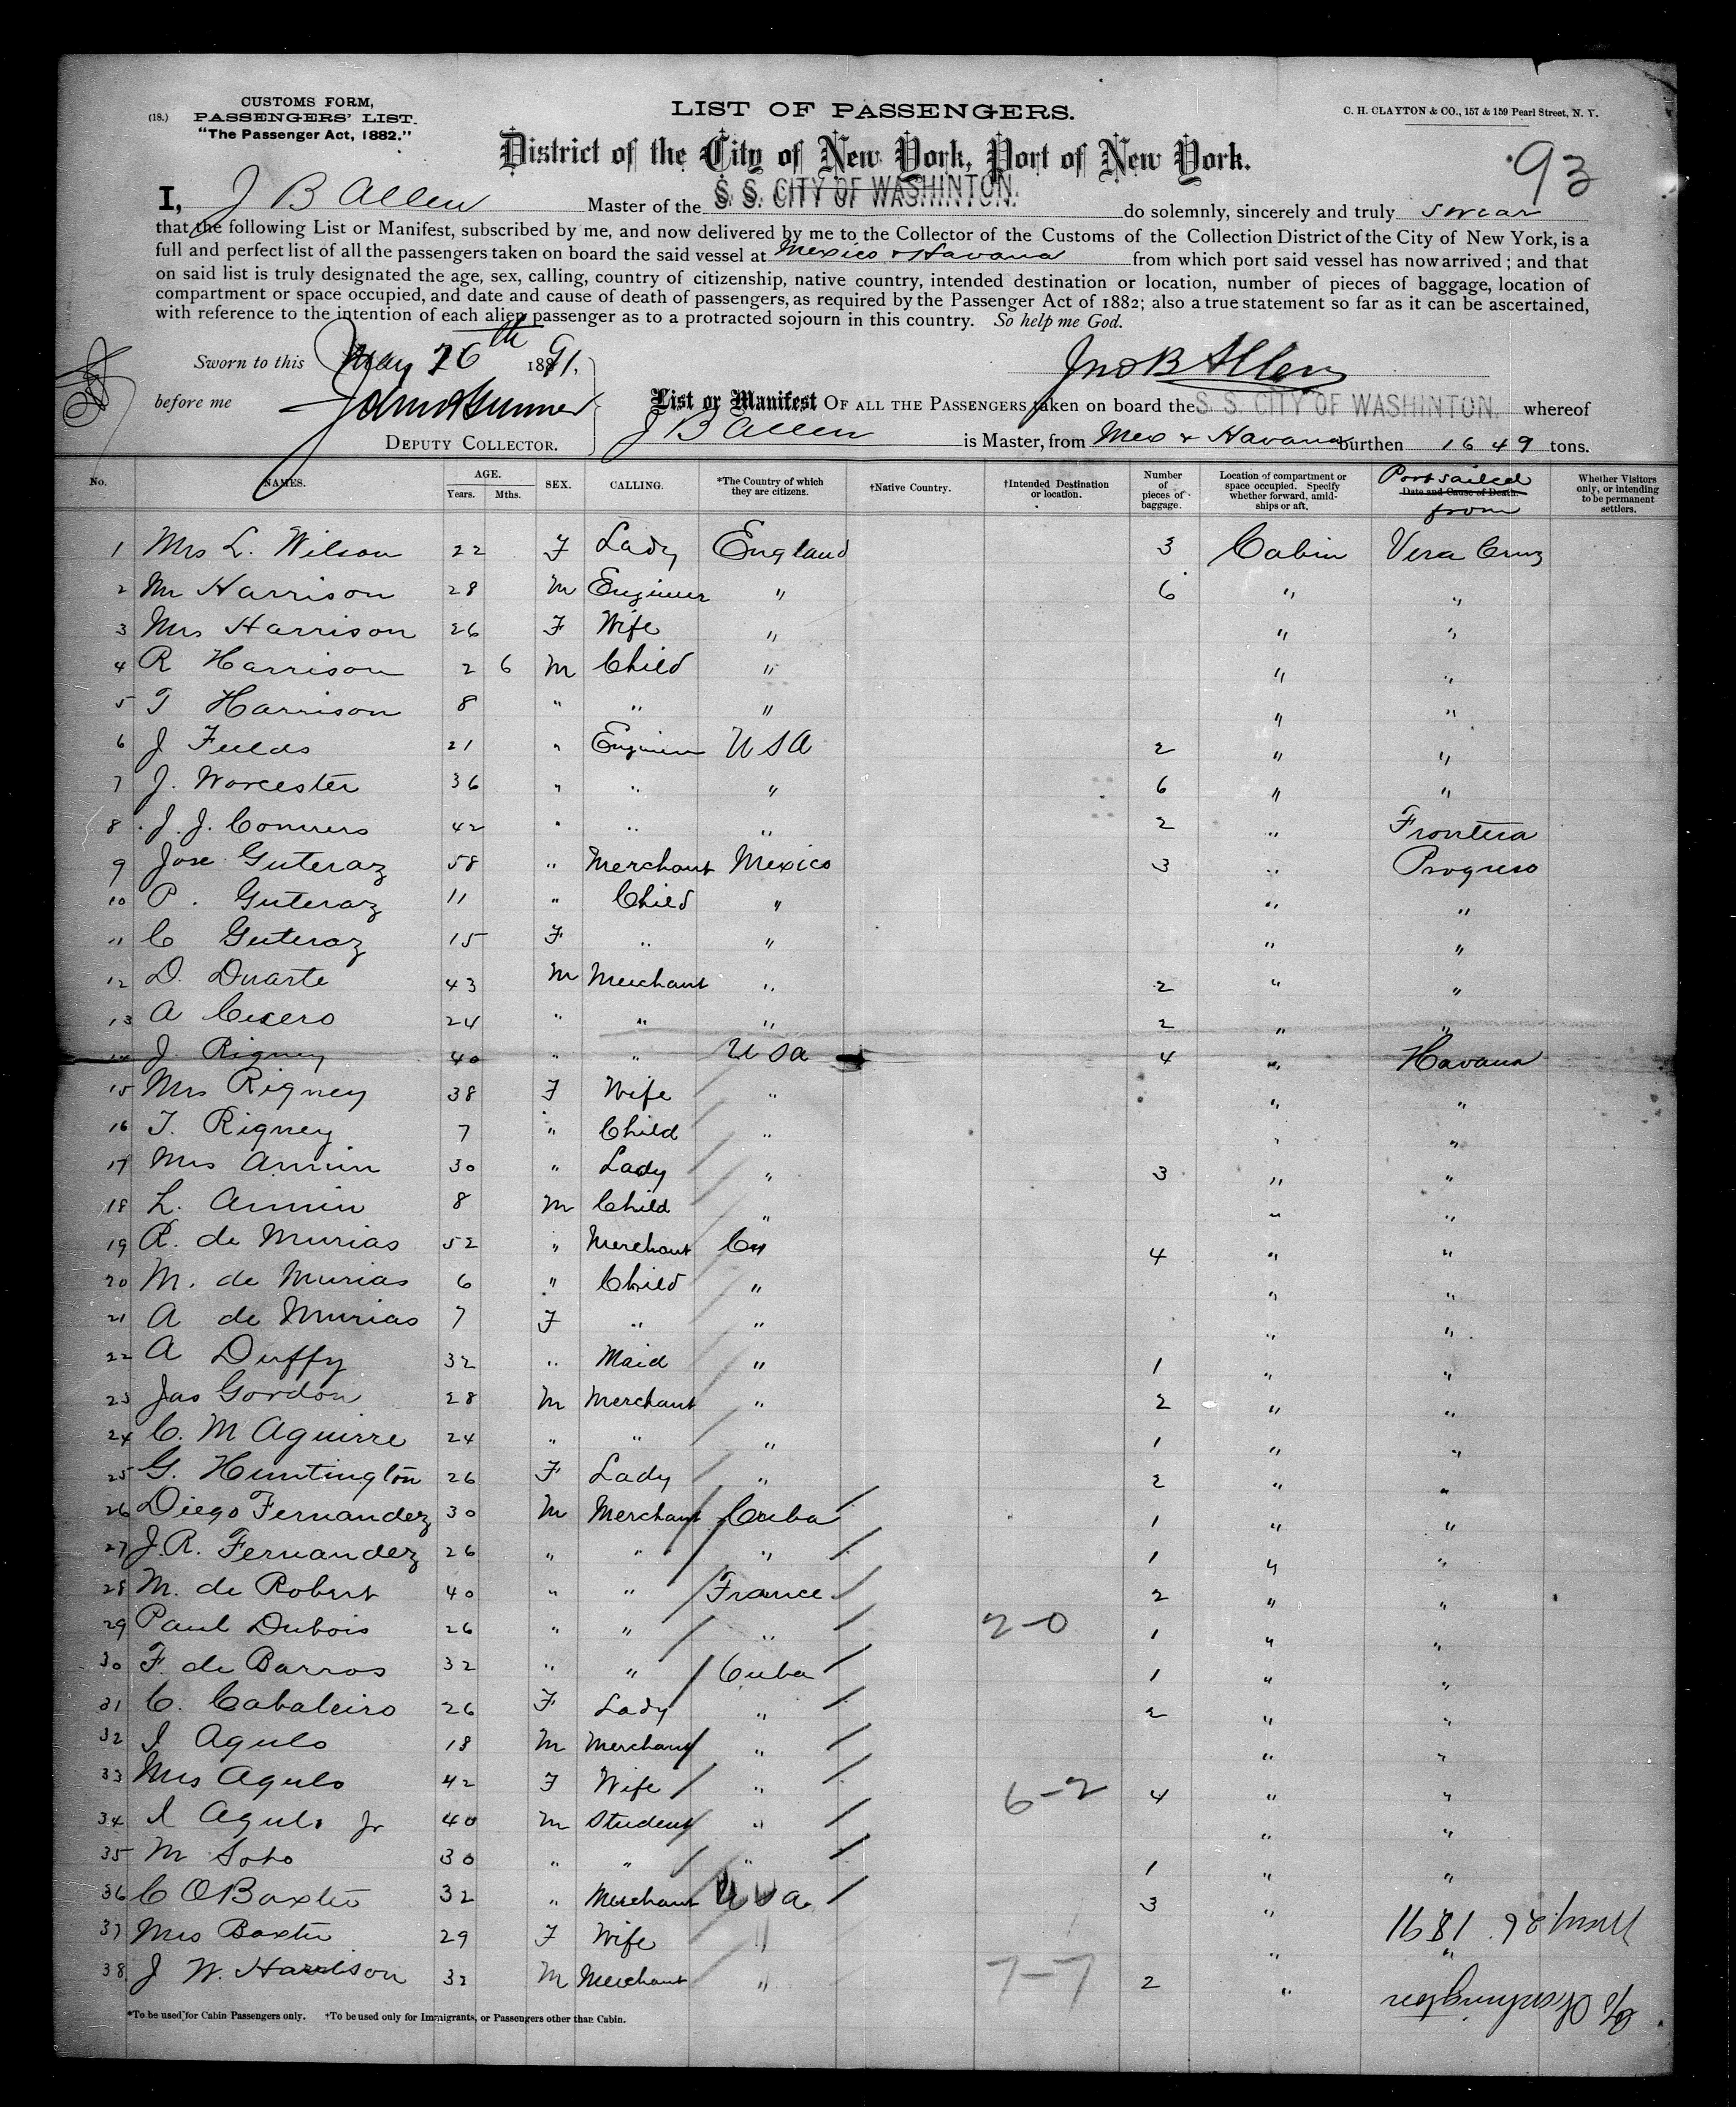 (18.) CUSTOMS FORM,
PASSENGERS' LIST.
"The Passenger Act, 1882."
LIST OF PASSENGERS.
C. H. CLAYTON & CO., 157 & 159 Pearl Street, N. Y.
District of the City of New York, Port of New York.
93
I, J B Allen Master of the S. S. CITY OF WASHINTON. do solemnly, sincerely and truly swear
that the following List or Manifest, subscribed by me, and now delivered by me to the Collector of the Customs of the Collection District of the City of New York, is a
full and perfect list of all the passengers taken on board the said vessel at Mexico & Havana from which port said vessel has now arrived; and that
on said list is truly designated the age, sex, calling, country of citizenship, native country, intended destination or location, number of pieces of baggage, location of
compartment or space occupied, and date and cause of death of passengers, as required by the Passenger Act of 1882; also a true statement so far as it can be ascertained,
with reference to the intention of each alien passenger as to a protracted sojourn in this country. So help me God.
Sworn to this May 26th 1891.
Jno B Allen
before me
DEPUTY COLLECTOR.
List or Manifest OF ALL THE PASSENGERS taken on board the S. S. CITY OF WASHINTON. whereof
J B Allen is Master, from Mex & Havana burthen 1649 tons.
No. NAMES. AGE. Years. Mths. SEX. CALLING. *The Country of which they are citizens. †Native Country. †Intended Destination or location. Number of pieces of baggage. Location of compartment or space occupied. Specify whether forward, amidships or aft. Date and Cause of Death. Port sailed from Whether Visitors only, or intending to be permanent settlers.
1 Mrs L. Wilson 22 F Lady England 3 Cabin Vera Cruz
2 Mr Harrison 28 M Engineer " 6 " "
3 Mrs Harrison 26 F Wife " " "
4 R Harrison 2 6 M Child " " "
5 T Harrison 8 " " " " "
6 J Fields 21 " Engineer USA 2 " "
7 J. Worcester 36 " " " 6 " "
8 J. J. Conners 42 " " " 2 " Frontera
9 Jose Guteraz 58 " Merchant Mexico 3 " Progreso
10 P. Guteraz 11 " Child " " "
11 C Guteraz 15 F " " " "
12 D. Duarte 43 M Merchant " 2 " "
13 A Cicero 24 " " " 2 " "
14 J. Rigney 40 " " USA 4 " Havana
15 Mrs Rigney 38 F Wife " " "
16 T. Rigney 7 " Child " " "
17 Mrs Armin 30 " Lady " 3 " "
18 L. Armin 8 M Child " " "
19 R. de Murias 52 " Merchant " 4 " "
20 M. de Murias 6 " Child " " "
21 A de Murias 7 F " " " "
22 A Duffy 32 " Maid " 1 " "
23 Jas Gordon 28 M Merchant " 2 " "
24 C. M Aguirre 24 " " " 1 " "
25 G. Huntington 26 F Lady " 2 " "
26 Diego Fernandez 30 M Merchant Cuba 1 " "
27 J. R. Fernandez 26 " " " 1 " "
28 M. de Robert 40 " " France 2 " "
29 Paul Dubois 26 " " " 2-0 1 " "
30 F. de Barros 32 " " Cuba 1 " "
31 C. Cabaleiro 26 F Lady " 2 " "
32 I Agulo 18 M Merchant " " "
33 Mrs Agulo 42 F Wife " 6-2 4 " "
34 I Agulo Jr 40 M Student " " "
35 M Soto 30 " " " 1 " "
36 C O Baxter 32 " Merchant USA 3 "
37 Mrs Baxter 29 F Wife " " "
38 J W. Harrison 32 M Merchant " 7-7 2 "
C/o Washington
May 26. 1891
*To be used for Cabin Passengers only. †To be used only for Immigrants, or Passengers other than Cabin.